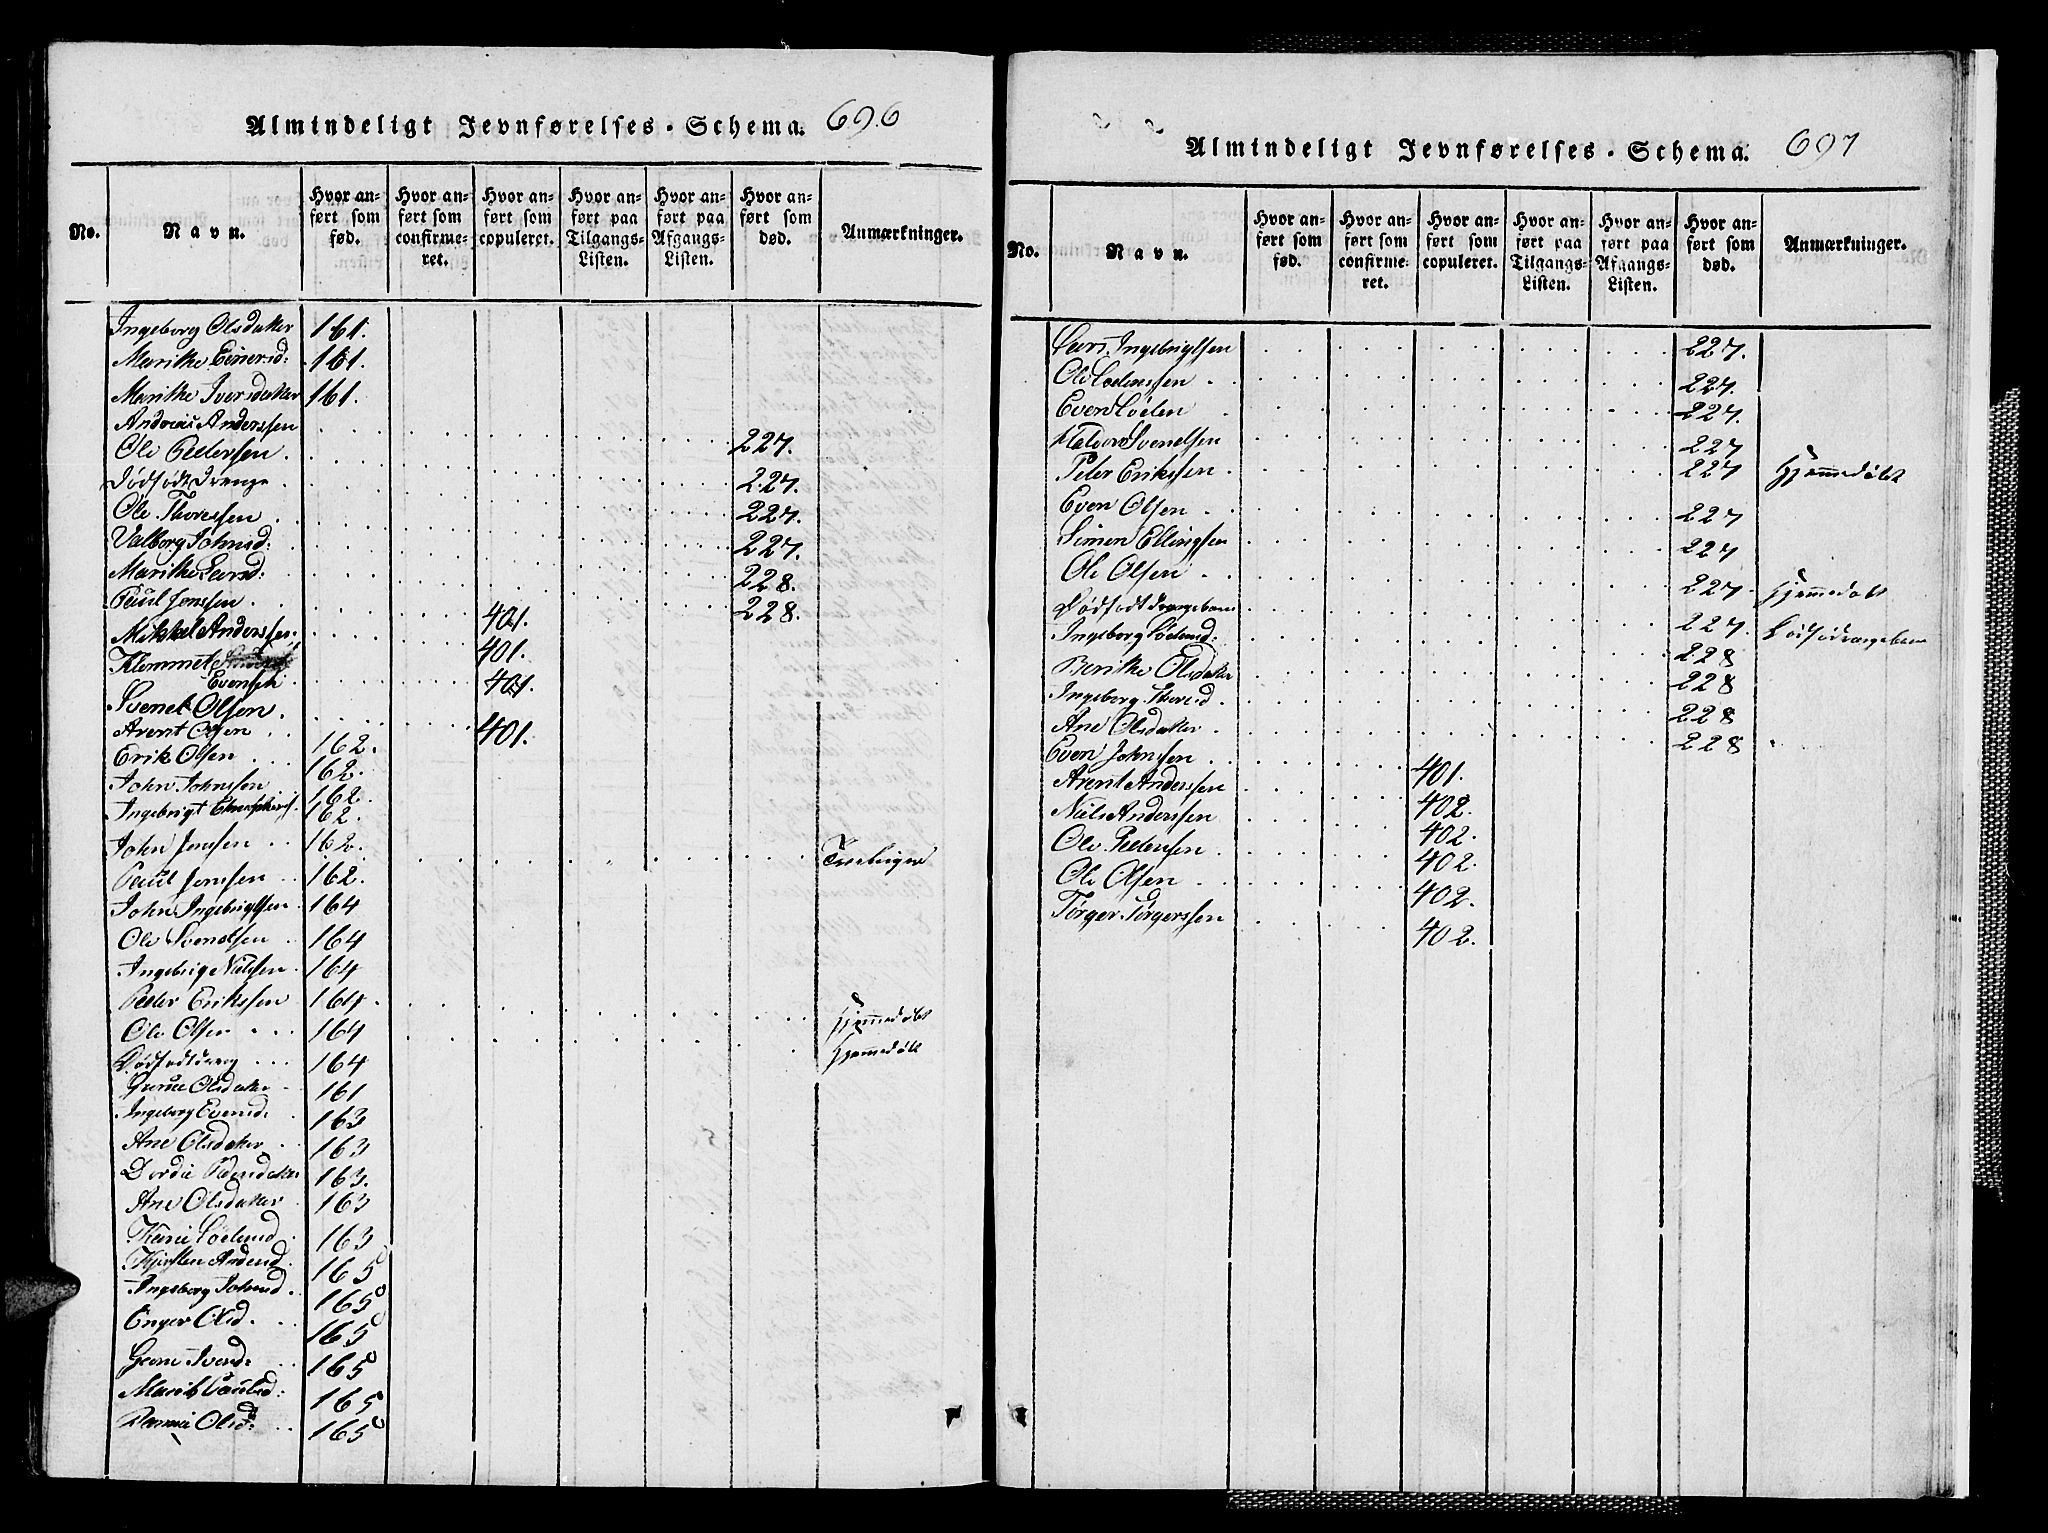 Almindeligt Jevnførelses-Schema. 696
No.
Navn.
Hvor anført som fød.
Hvor anført som confirmeret.
Hvor anført som copuleret.
Hvor anført paa Tilgangs-Listen.
Hvor anført paa Afgangs-Listen.
Hvor anført som død.
Anmærkninger.
Ingeborg Olsdatter 161.
Marithe Einersd: 161.
Marithe Iversdatter 161.
Andreas Anderssen
Ole Pedersen 227.
Dødfødt Drenge 227.
Ole Thoressen 227.
Valborg Johnsd: 227.
Marithe Larsd: 228.
Paul Jonssen 401. 228.
Mikkel Anderssen 401.
Klemmet
Evensen 401.
Svend Olsen
Arent Olsen 401.
Erik Olsen 162.
John Johnssen 162.
Ingebrigt 162.
162.
John Jonssen 162. Tvellinger
Paul Jonssen 162.
John Ingebrigtsen 164
Ole Svendsen 164
Ingebrig Nilssen 164
Peder Erikssen 164. Hjemmedøbt
Ole Olsen 164 Hjemmedøbt
Dødfødt dreng 164
Olsdatter 161
Ingeborg Evensd: 163
Ane Olsdatter 163
Dordie Pedersdatter 163.
Ane Olsdatter 163
Karie Loelusd 163
Kjersten Andersd. 165
Ingeborg Johnsd. 165
Enger Olsd. 165
Iversd: 165
Marit Paulsd: 165
Olsd: 165
Almindeligt Jevnførelses-Schema. 697
No.
Navn.
Hvor anført som fød.
Hvor anført som confirmeret.
Hvor anført som copuleret.
Hvor anført paa Tilgangs-Listen.
Hvor anført paa Afgangs-Listen.
Hvor anført som død.
Anmærkninger.
Lars Ingebrigtsen 227.
Ole 227.
Even 227.
Halvor Svendsen 227
Peter Erikssen 227 Hjemmedøbt
Even Olsen 227
Simen Ellingsen 227
Ole Olsen 227 Hjemmedøbt
Dødfødt Drengebarn 227.
Ingeborg 228
Berithe Olsdatter 228
Ingeborg Thoresd 228
Ane Olsdatter 228
Even Johnssen 401.
Arent Anderssen 402.
Niels Anderssen 402.
Ole Pedersen 402.
Ole Olsen 402.
Tørger Tørgerssen 402.